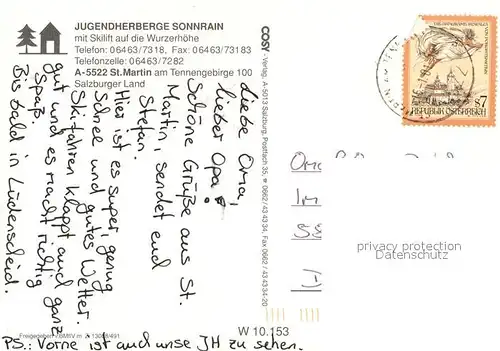 JUGENDHERBERGE SONNRAIN
mit Skilift auf die Wurzerhöhe
Telefon: 06463/7318, Fax: 06463/73183
Telefonzelle: 06463/7282
A-5522 St.Martin am Tennengebirge 100
Salzburger Land
COSY-Verlag, A-5013 Salzburg, Postfach 35, 0662/43 43 34, Fax 0662/43 43 34-20
Liebe Oma,
lieber Opa!
Schöne Grüße aus St.
Martin, sendet euch
Stefan.
Hier ist es super, genug
Schnee und gutes Wetter.
Skifahren klappt auch ganz
gut und es macht richtig
Spaß.
Bis bald in Lüdenscheid.
PS.: Vorne ist auch unse JH zu sehen.
S7
REPUBLIK ÖSTERREICH
Im
protected
W 10.153
Freigegeben